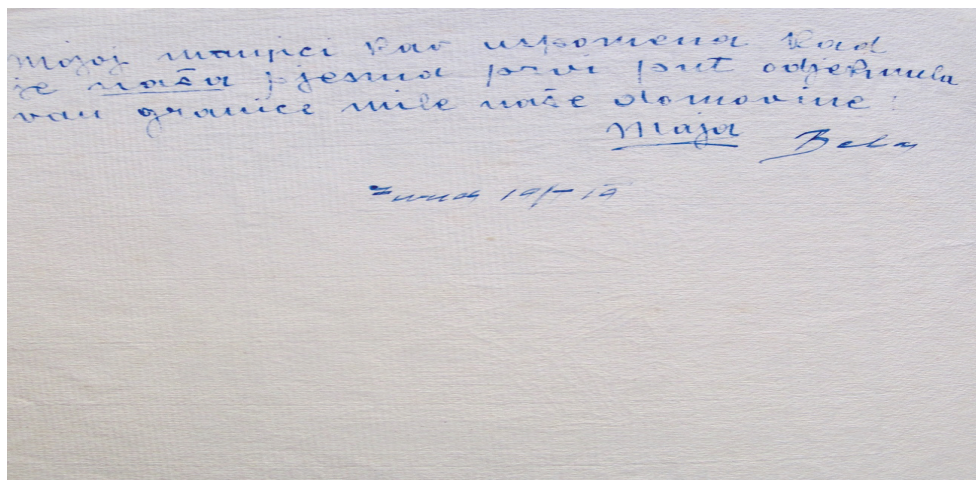 Mojoj manjici kao uspomena kad
je naša pjesma prvi put odjeknula
van granice mile naše domovine!
Maja Bela